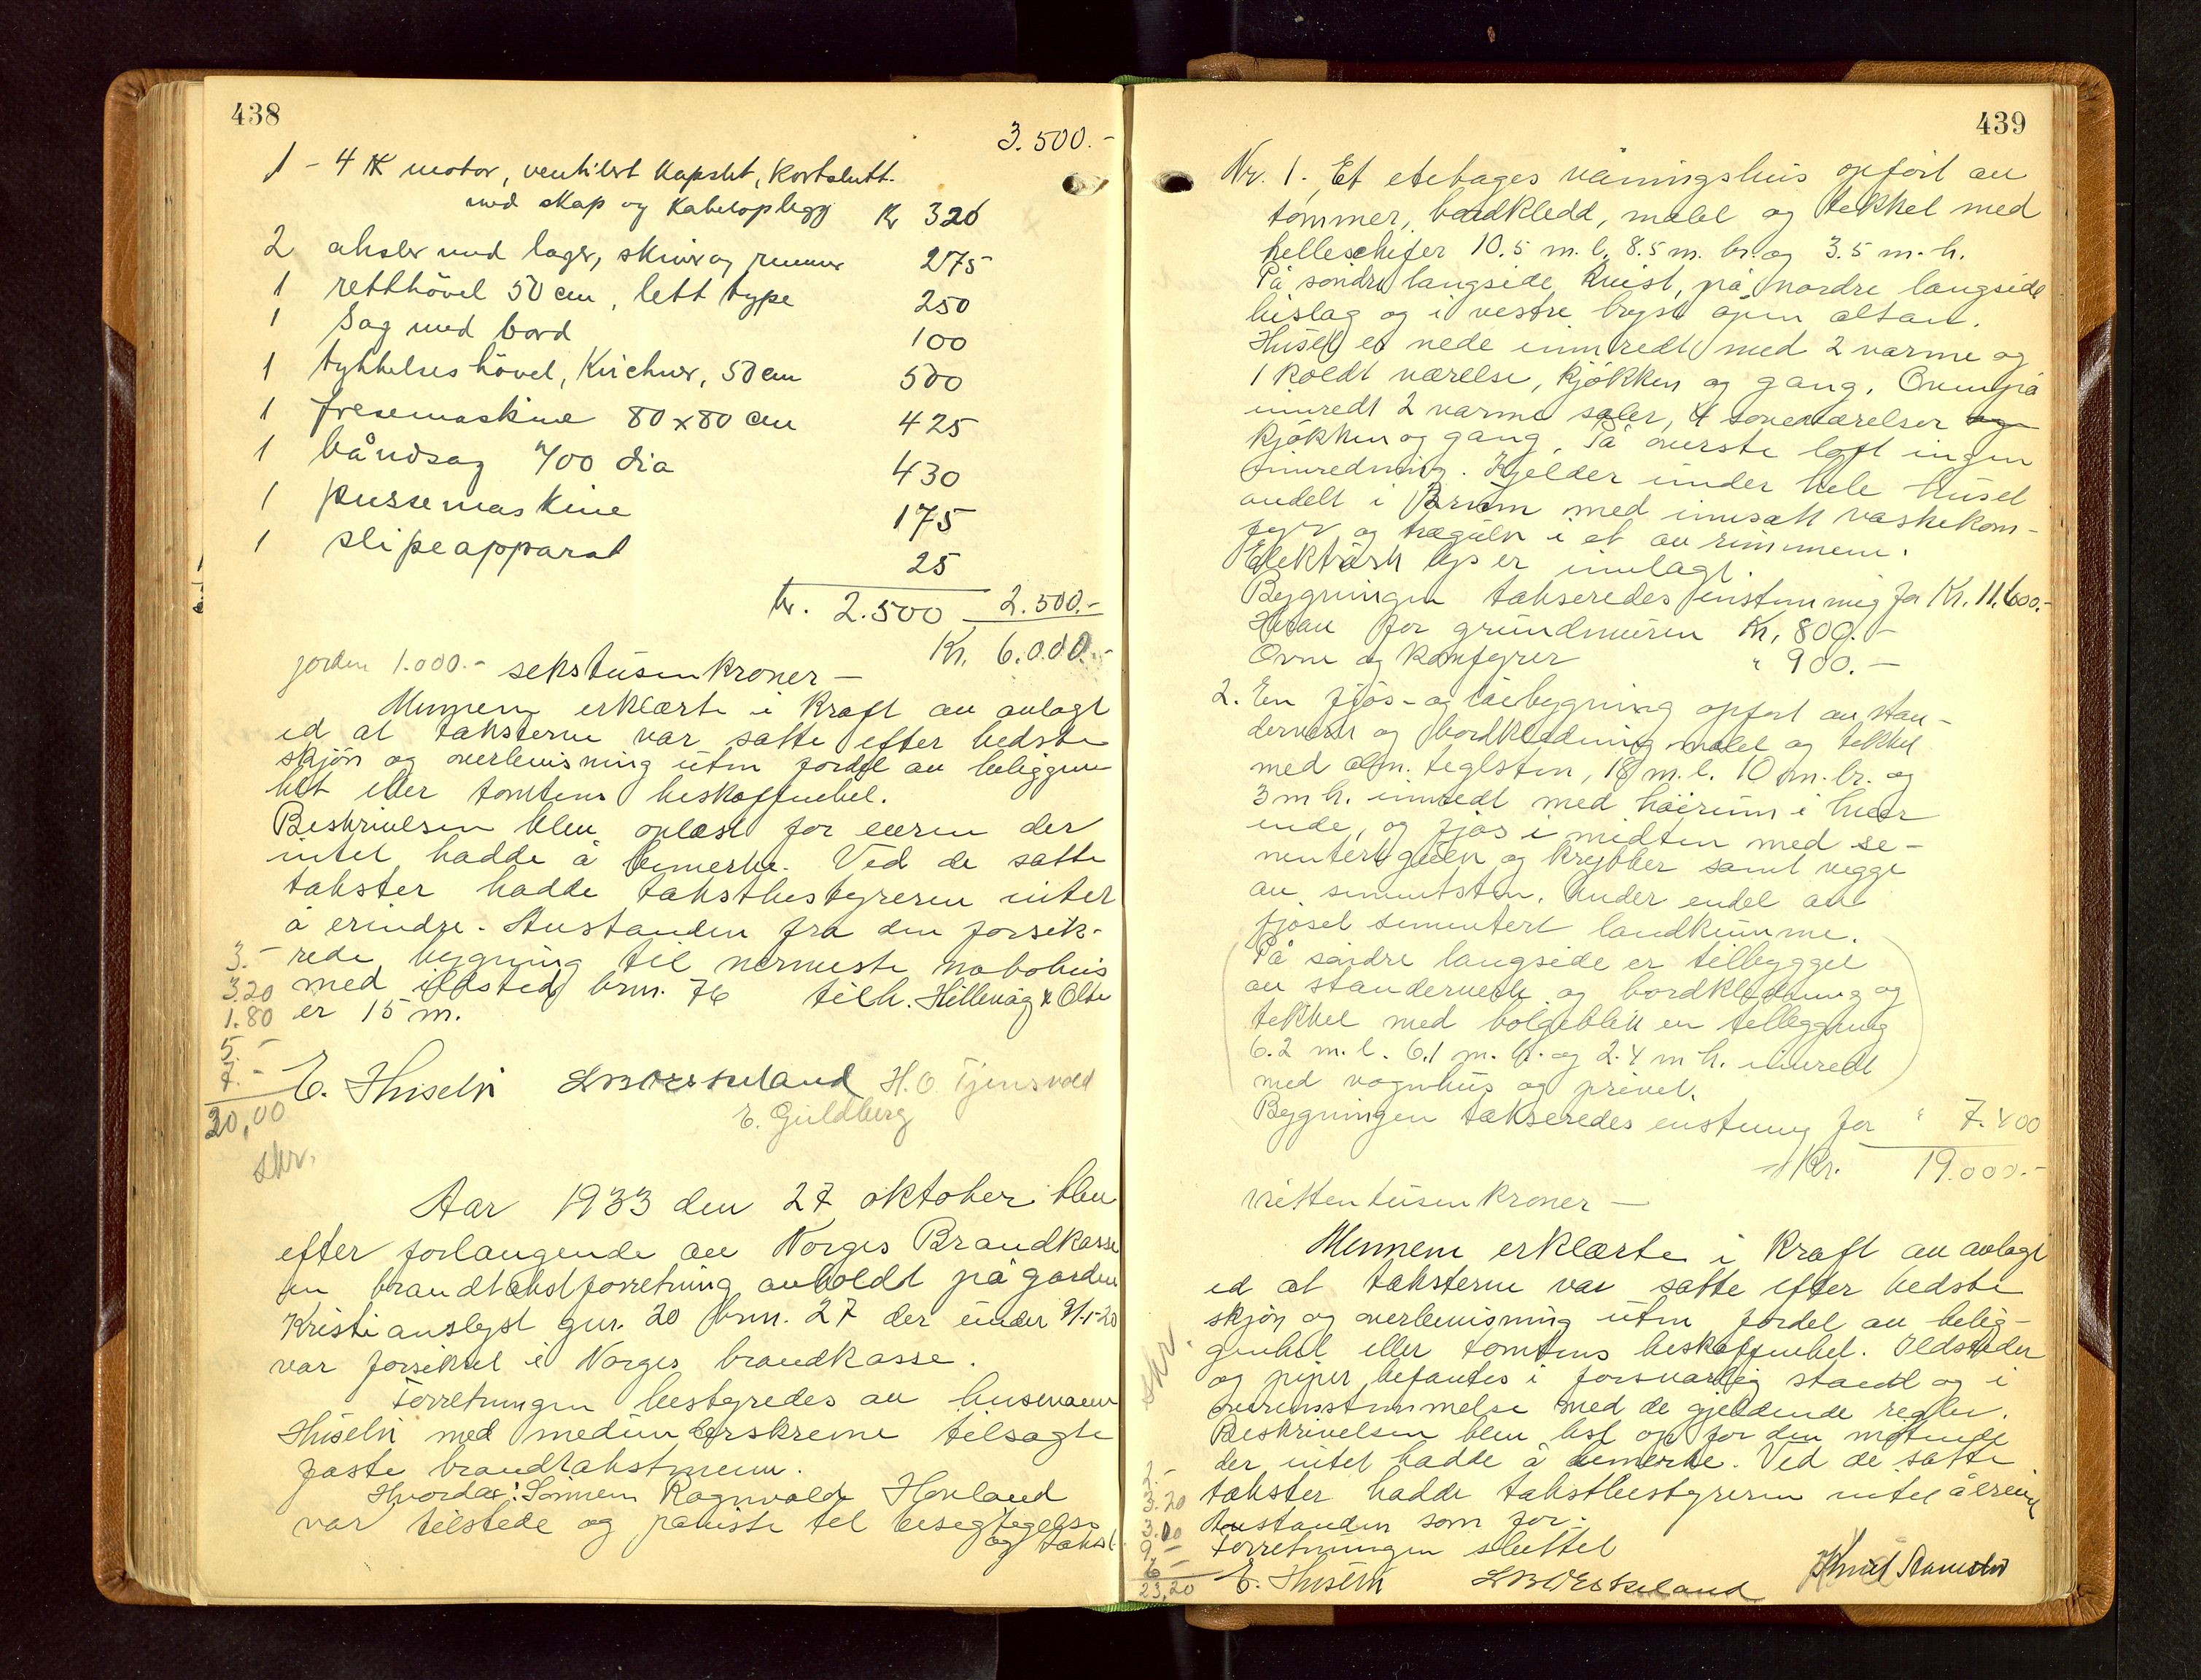 438
3.500.-
1 - 4 HK motor, ventilert kapslet, kortslutt.
med skap og kabeloplegg Kr 320
2 aksler med lager, skiver og remmer 275
1 retthövel 50 cm, lett type 250
1 Sag med bord 100
1 tykkelseshövel, Kirchner, 50 cm 500
1 fresemaskine 80x80 cm 425
1 båndsag 700 dia 430
1 pussemaskine 175
1 slipeapparat 25
kr. 2.500 2.500.-
Kr. 6.000.-
jorden 1.000.- sekstusen kroner -
Mennene erklærte i kraft av avlagt
ed at taksterne var satte efter bedste
skjön og overbevisning uten fordel av beliggen
het eller tomtens beskaffenhet.
Beskrivelsen blev oplæst for eieren der
intet hadde å bemerke. Ved de satte
takster hadde takstbestyreren intet
å erindre. Avstanden fra den forsik-
3.- rede bygning til nermeste nabohus
3.20 med ildsted brnr. 76 tilh. Hillevåg
1.80 er 15 m.
5.-
7.-
20,00
E. Huselv H.O. Tjensvold
E. Guldberg
skr.
Aar 1933 den 27 oktober blev
efter forlangende av Norges Brandkasse
en brandtakstforretning avholdt på garden
Kristianslyst gnr. 20 brnr. 27 der under
var forsikret i Norges brandkasse.
Forretningen bestyredes av lensmann
Huselv med medunderskrevne tilsagte
faste brandtakstmenn.
Hvorda: Sönnen Ragnvald Hovland
var tilstede og påviste til besigtigelse
og takst
439
Nr. 1. Et etetages våningshus opfört av
tömmer, bordkledd, malet og tekket med
helleschifer 10.5 m. l. 8.5 m. br. og 3.5 m. h.
På söndre langside kvist, på nordre langside
bislag og i vestre bryst åpen altan.
Huset er nede innredt med 2 varme og
1 koldt værelse, kjökken og gang. Ovenpå
innredt 2 varme saler, 4 soveværelser
kjökken og gang. På överste loft ingen
innredning. Kjelder under hele huset
avdelt i rum med innsatt vaskekom-
fyr og trægulv i et av rummene.
Elektrisk lys er innlagt.
Bygningen takseredes enstemmig for Kr. 11.600.-
Herav for grundmuren Kr. 800.-
Ovne og komfyrer " 900.-
2. En fjös- og löebygning opfört av stan-
derverk og bordkledning malet og tekket
med alm. teglsten, 18 m. l. 10 m. br. og
3 m h. innredt med höirum i hver
ende, og fjös i midten med se-
mentert gulv og krybber samt vegge
av sementsten. Under endel av
fjöset sementert landkumme.
På söndre langside er tilbygget
av standerverk og bordkledning og
tekket med bölgeblik en tilbygning
6.2 m. l. 6.1 m. br. og 2.4 m h. innredt
med vognhus og privet.
Bygningen takseredes enstemmig for " 7.400
Kr. 19.000.-
nitten tusen kroner -
Mennene erklærte i kraft av avlagt
ed at taksterne var satte efter bedste
skjön og overbevisning uten fordel av belig-
genhet eller tomtens beskaffenhet. Ildsteder
og piper befantes i forsvarlig stand og i
overensstemmelse med de gjeldende regler.
Beskrivelsen blev lest op for den mötende
der intet hadde å bemerke. Ved de satte
takster hadde takstbestyreren intet å erindre
Avstanden som för.
Forretningen sluttet
skr.
3.20
3.00
9 -
6 -
23,20
E. Huselv Knut